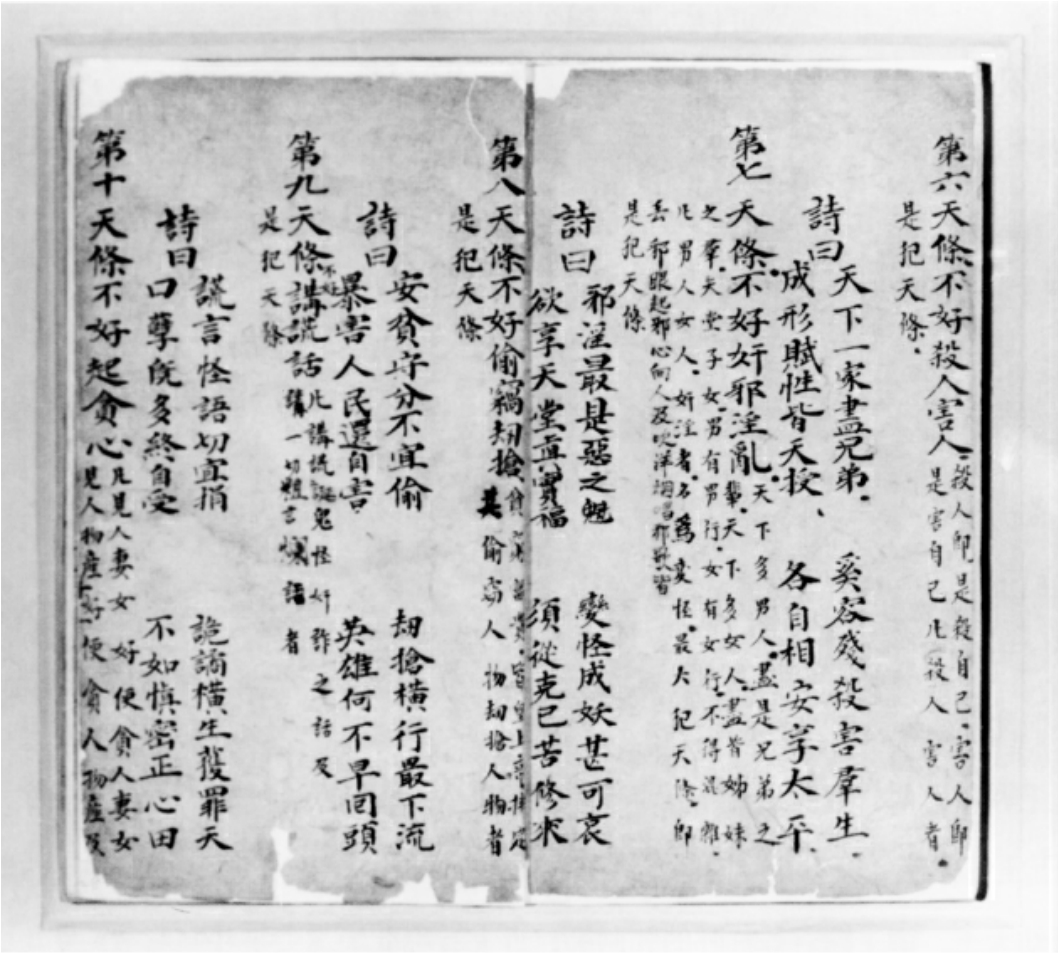 第六天條不好殺人害人殺人卽是殺自己害人卽
是害自己凡殺人害人者
是犯天條
詩曰
天下一家盡兄弟 奚容殘殺害羣生
成形賦性皆天授 各自相安享太平
第七天條不好奸邪淫亂天下多男人盡是兄弟之
輩天下多女人盡皆姊妹
之羣天堂子女男有男行女有女行不得混雜
凡男人女人奸淫者名爲變怪最大犯天條卽
丢邪眼起邪心向人及吹洋烟唱邪歌皆
是犯天條
詩曰
邪淫最是惡之魁 變怪成妖甚可哀
欲享天堂眞實福 須從克己苦修來
第八天條不好偷竊刼搶貧富 皇上 排定
偷竊人物刼搶人物者
是犯天條
詩曰
安貧守分不宜偷 刼搶橫行最下流
暴害人民還自害 英雄何不早回頭
第九天條不好講謊話凡講謊 鬼怪奸詐之話及
講一切 言 語者
是犯天條
詩曰
謊言怪語切宜捐 詭譎橫生獲罪天
口孽旣多終自受 不如愼密正心田
第十天條不好起貪心凡見人妻女好便貪人妻女
見人物產好便貪人物產及